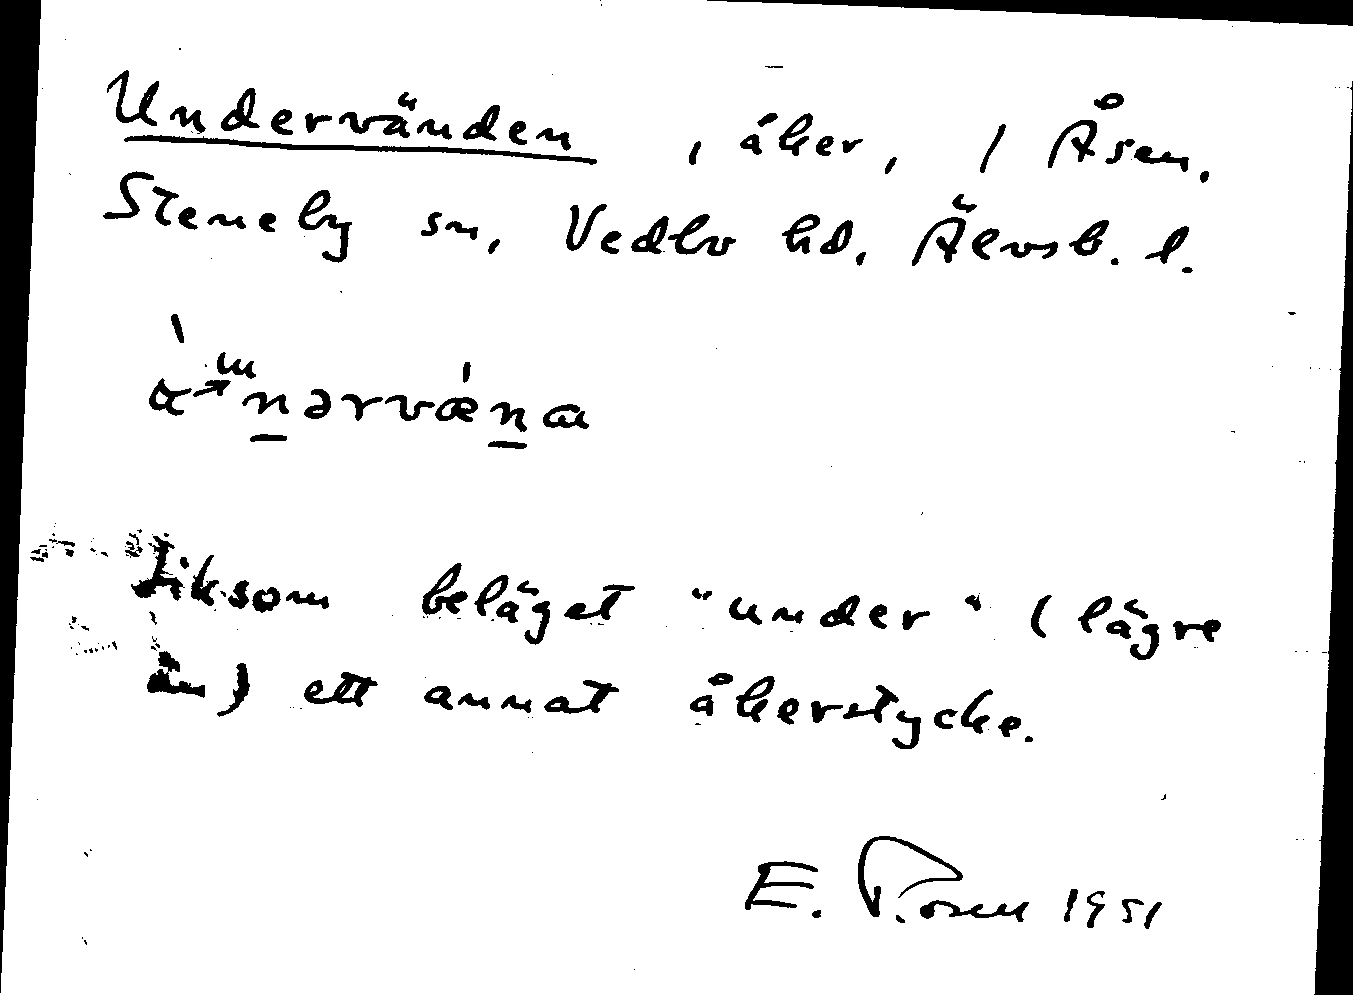 Undervänden , åker, / Åsen.
Steneby sn, Vedbo hd, Älvsb. l.
nərvæna
Liksom beläget "under" (lägre
än) ett annat åkerstycke.
E. Rosen 1951